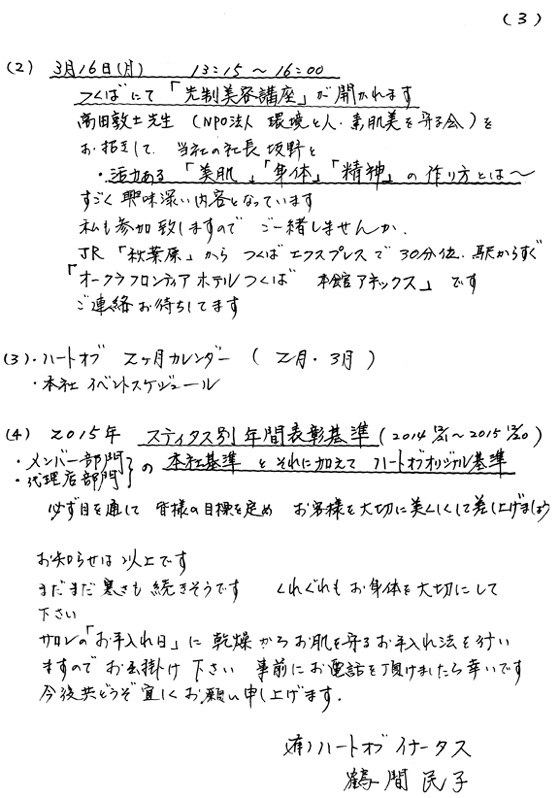 (3)
(2) 3月16日(月) 13:15～16:00
つくばにて「先制美容講座」が開かれます
高田敦士先生 (NPO法人 環境と人・素肌美を守る会)を
お招きして 当社の社長 坂野と
・活力ある「美肌」「身体」「精神」の作り方とは～
すごく興味深い内容となっています
私も参加致しますので ご一緒しませんか.
JR「秋葉原」から つくばエクスプレスで 30分位. 駅からすぐ
「オークラフロンティアホテルつくば 本館アネックス」です
ご連絡お待ちしてます
(3)・ハートオブ 2ヶ月カレンダー (2月・3月)
・本社 イベントスケジュール
(4) 2015年 スティタス別年間表彰基準 (2014 12/21～2015 12/20)
・メンバー部門
・代理店部門 } の 本社基準 とそれに加えて ハートオブオリジナル基準
必ず目を通して 皆様の目標を定め お客様を大切に美しくして差し上げましょう
お知らせは以上です
まだまだ寒さも続きそうです くれぐれもお身体を大切にして
下さい
サロンの「お手入れ日」に乾燥からお肌を守るお手入れ法を行い
ますので お出掛け下さい 事前にお電話を頂けましたら幸いです
今後共どうぞ宜しくお願い申し上げます.
(有)ハートオブ イナータス
鶴間民子